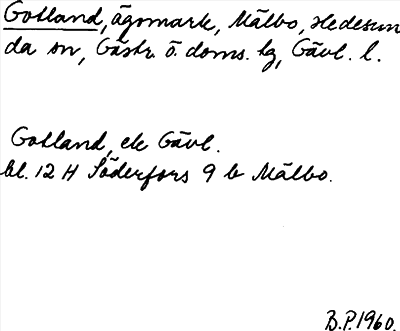 Gotland, ägomark, Mälbo, Hedesun
da sn, Gästr. ö. doms. lg, Gävl. l.
Gotland, ek Gävl.
bl. 12 H Söderfors 9 b Mälbo.
B.P.1960.